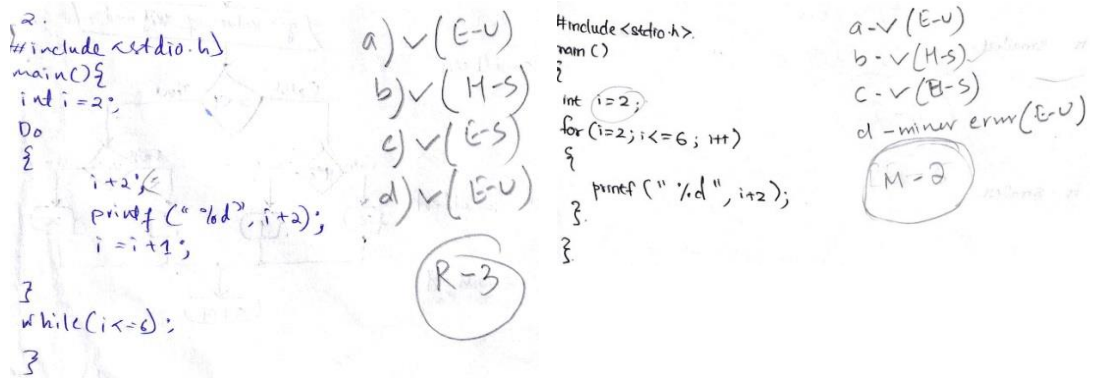 2.
#include <stdio.h>
main(){
int i=2;
Do
{
i+2;
printf("%d", i+2);
i=i+1;
}
while(i<=6);
}
a) ✓ (E-U)
b) ✓ (H-S)
c) ✓ (E-S)
d) ✓ (E-U)
R-3
#include <stdio.h>.
main ()
{
int i=2;
for (i=2; i<=6; i++)
{
printf ("%d", i+2);
}
}
a-✓ (E-U)
b-✓ (H-S)
c-✓ (E-S)
d-minor error (E-U)
M-2